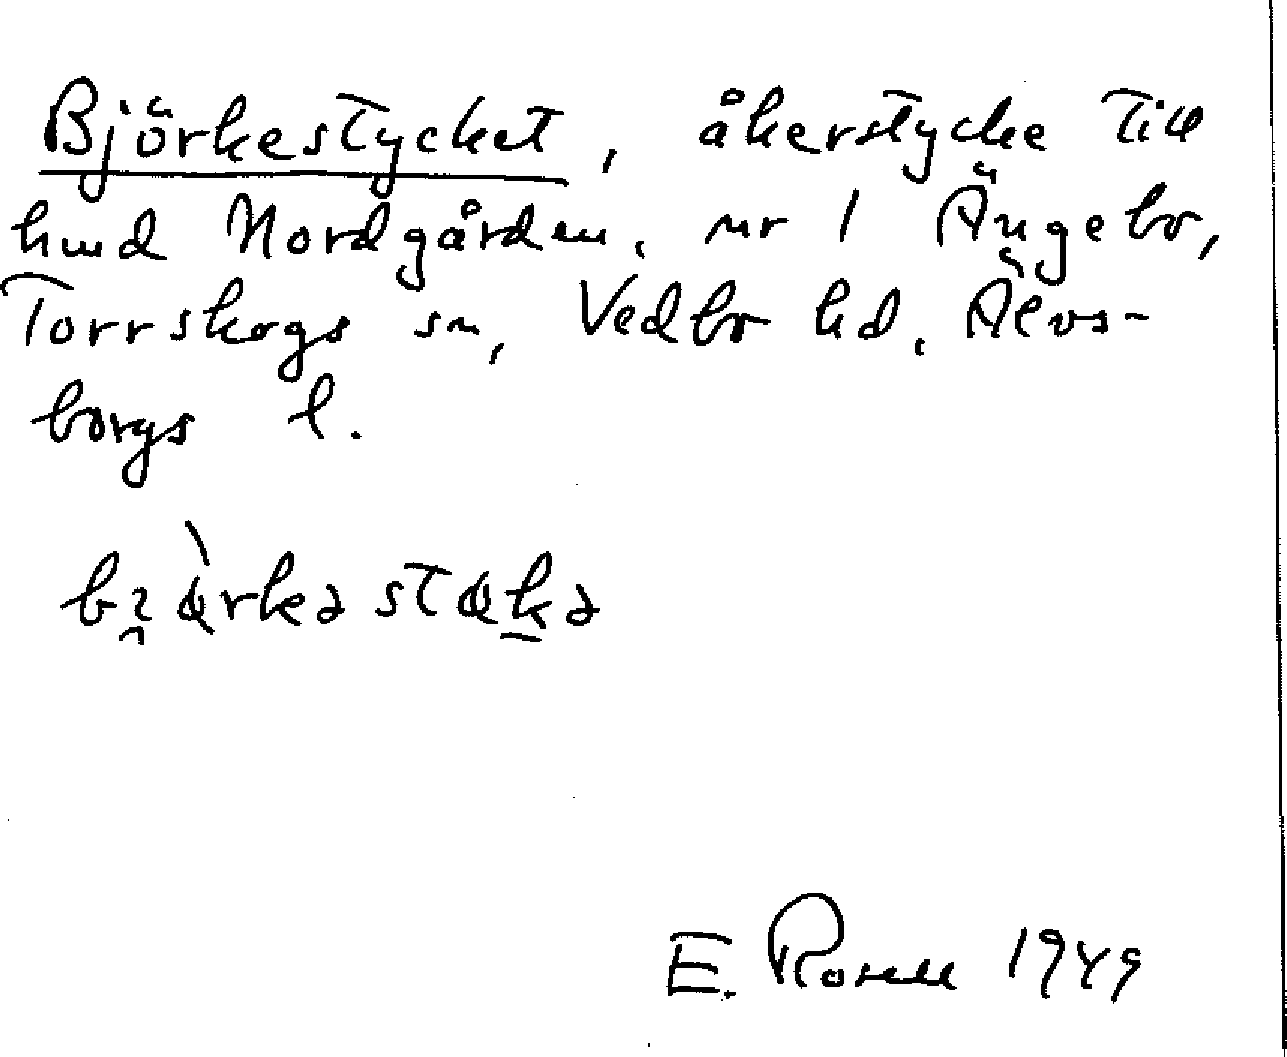 Björkestycket, åkerstycke till
hmd Nordgården, nr 1 Ängebo,
Torrskogs sn, Vedbo hd, Älvs-
borgs l.
E. 1949